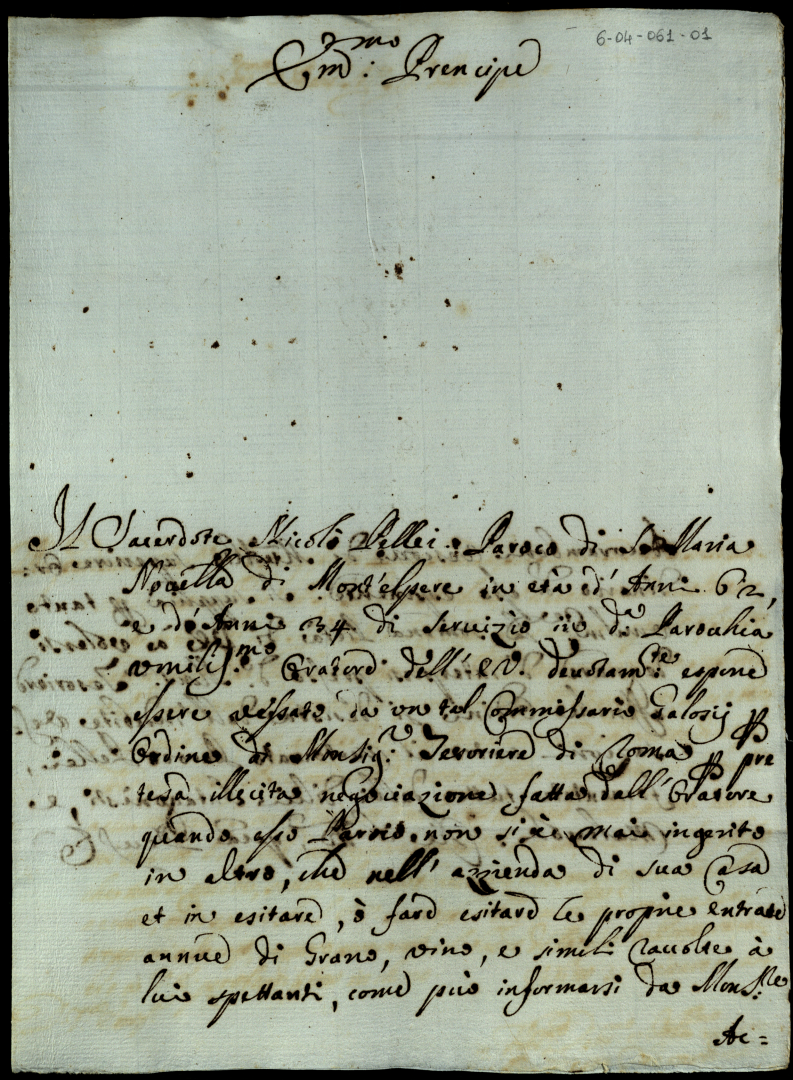 6-04-061-01
Em:mo Prencipe
Il Sacerdote Nicolò Pellei Paroco di S. Maria
Novella di Mont'elpere in età d'Anni 62,
e d'Anni 34 di servizio in d.a Parochia
umiliss:mo Oratore dell'E.V. devotam:te espone
essere vessato da un tal Commissario Galosij P
Ordine di Monsig.r Tesoriere di Roma P pre
tesa illecita negoziazione fatta dall'Oratore
quando esso non si è mai ingerito
in altro, che nell'azzienda di sua Casa
et in esitare, ò fare esitare le proprie entrate
annue di Grano, vino, e simili racolte à
lui spettanti, come può informarsi da Mons:re
Ac=